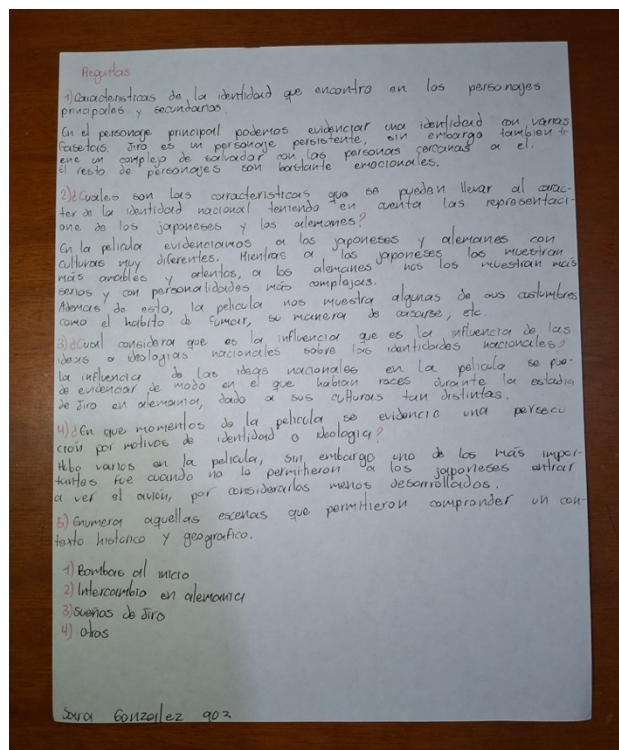 Preguntas
1) Caracteristicas de la identidad que encontro en los personajes
principales y secundarios.
En el personaje principal podemos evidenciar una identidad con varias
fasetas. Jiro es un personaje persistente, sin embargo tambien ti-
ene un complejo de salvador con las personas cercanas a el.
El resto de personajes son bastante emocionales.
2) ¿Cuales son las caracteristicas que se pueden llevar al carac-
ter de la identidad nacional teniendo en cuenta las representaci-
one de los japoneses y los alemanes?
En la pelicula evidenciamos a los japoneses y alemanes con
culturas muy diferentes. Mientras a los japoneses los muestran
más amables y atentos, a los alemanes nos los muestran más
serios y con personalidades más complejas.
Ademas de esto, la pelicula nos muestra algunas de sus costumbres
como el habito de fumar, su manera de casarse, etc.
3) ¿Cual considera que es la influencia que es la influencia de las
ideas o ideologias nacionales sobre las identidades nacionales?
La influencia de las ideas nacionales en la pelicula se pue-
de evidenciar de modo en el que habian roces durante la estadia
de Jiro en alemania, dado a sus culturas tan distintas.
4) ¿En que momentos de la pelicula se evidencio una persecu
ción por motivos de identidad o ideologia?
Hubo varios en la pelicula, sin embargo uno de los más impor-
tantes fue cuando no le permitieron a los japoneses entrar
a ver el avión, por considerarlos menos desarrollados.
5) Enumerar aquellas escenas que permitieron comprender un con-
texto historico y geografico.
1) Bombas al inicio
2) Intercambio en alemania
3) Sueños de Jiro
4) otros
Sara Gonzalez 902